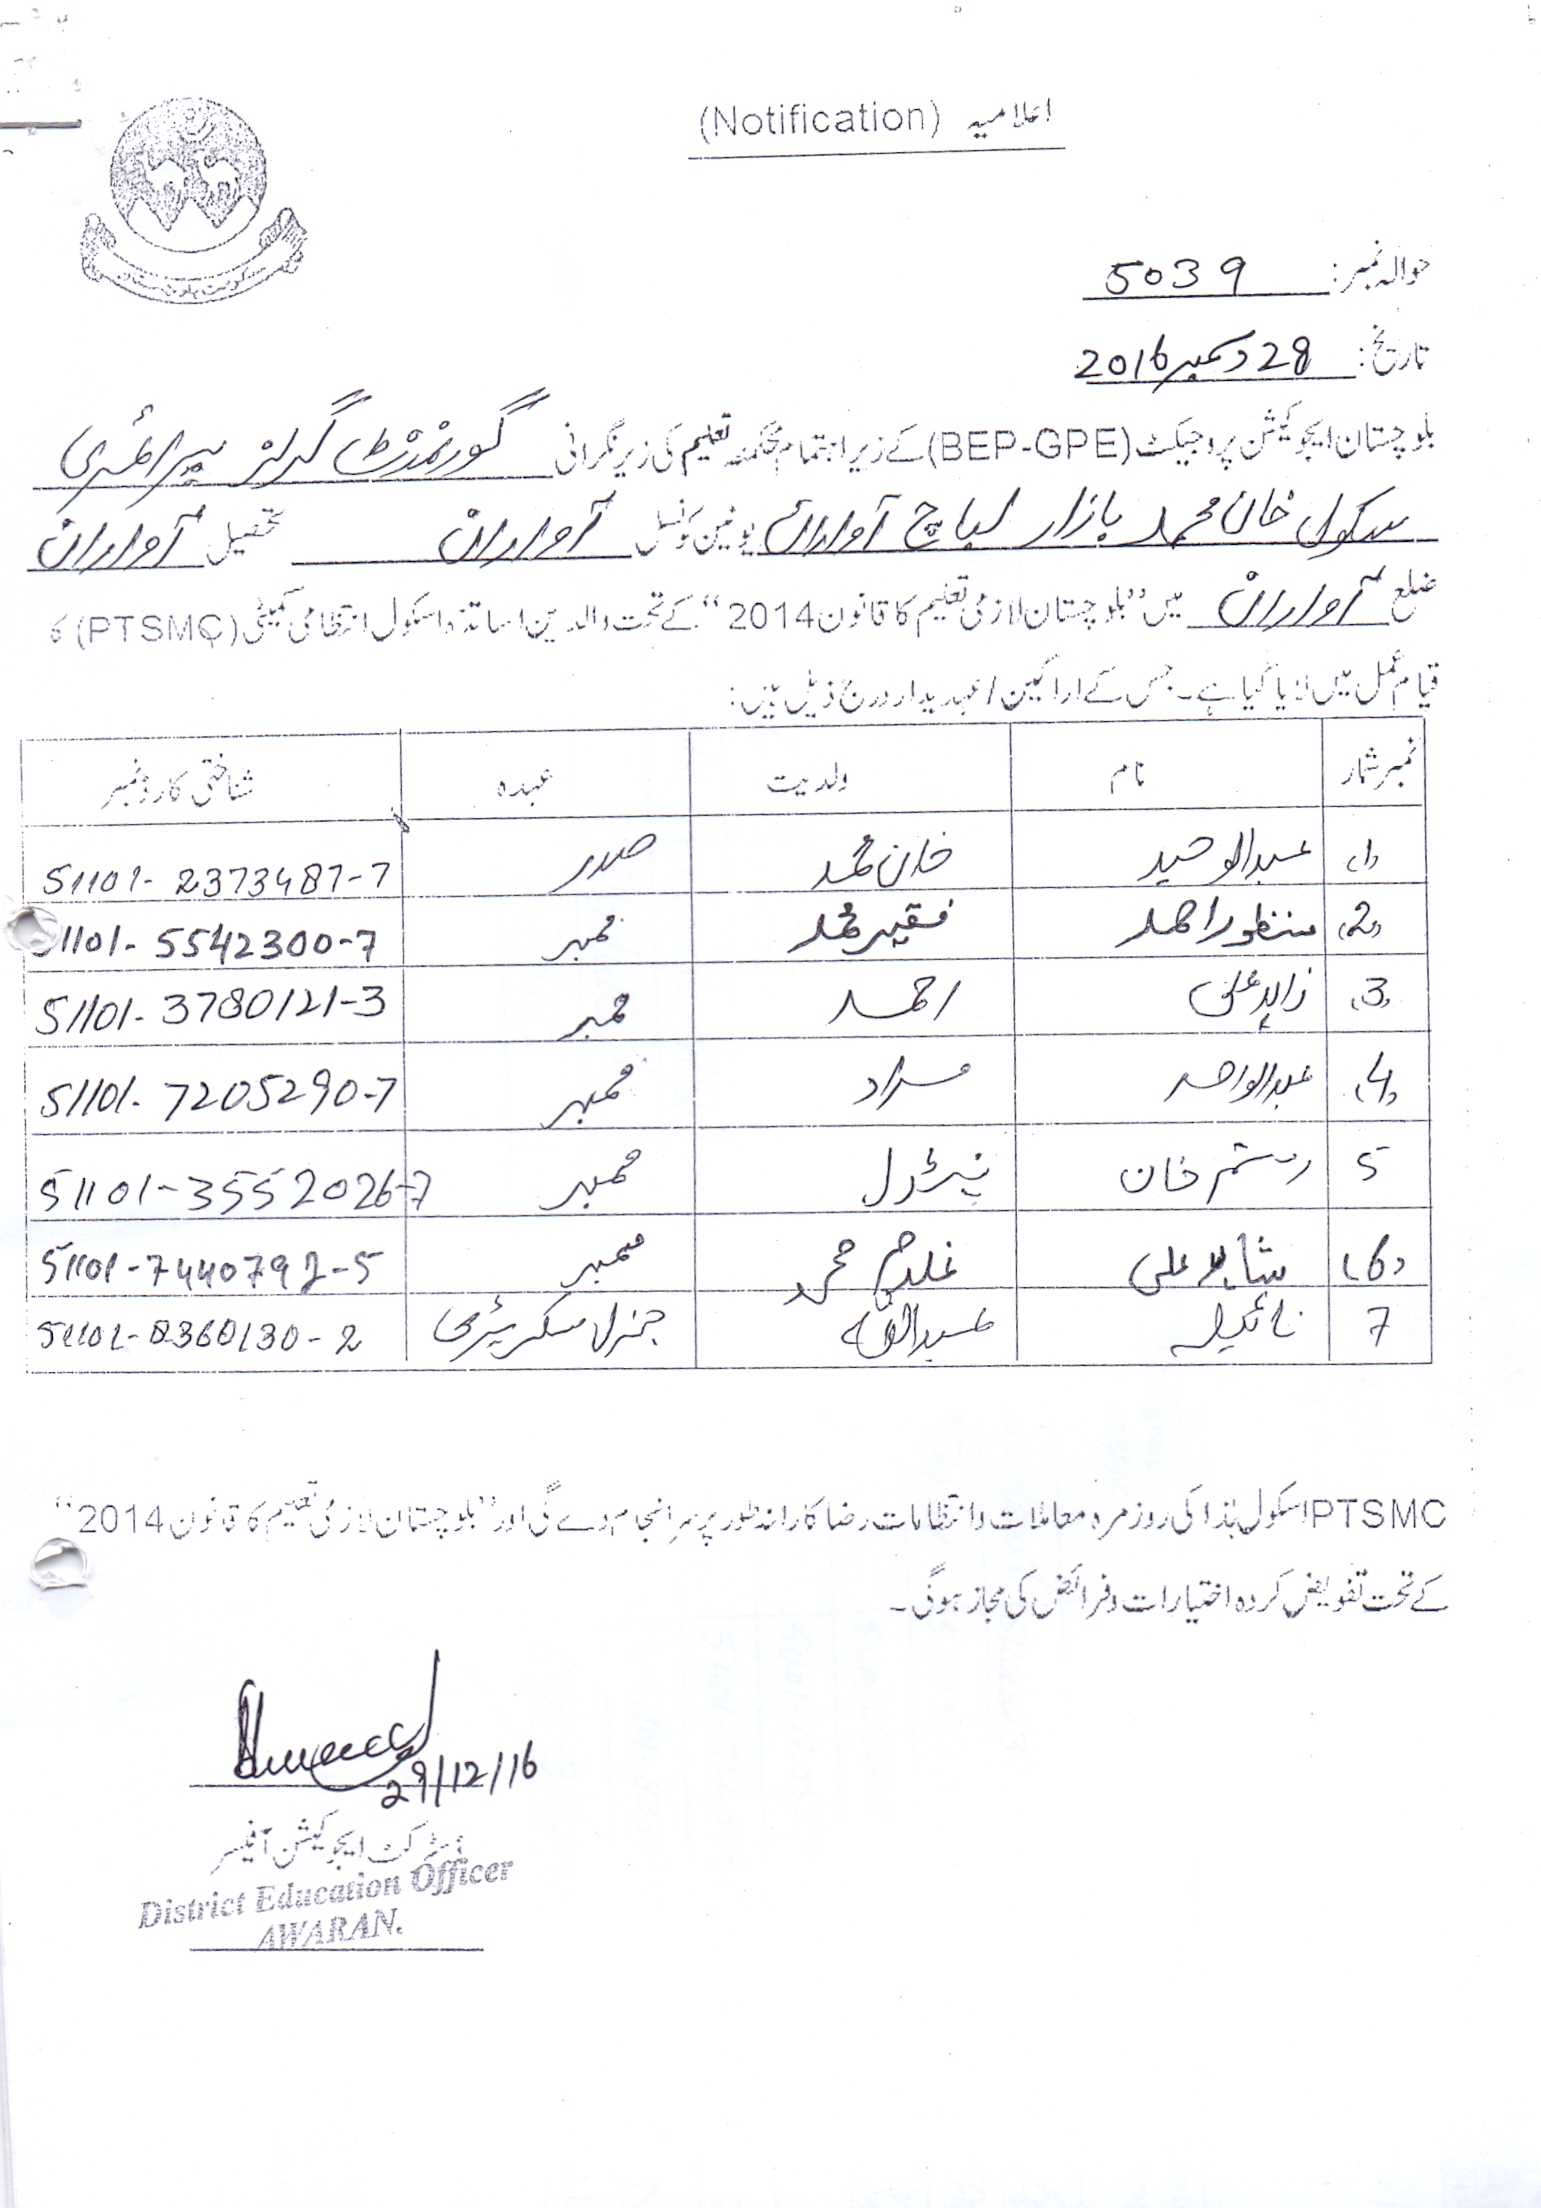 اعلامیہ (Notification)
حکومت بلوچستان
حوالہ نمبر: 5039
تاریخ: 28 دسمبر 2016
بلوچستان ایجوکیشن پروجیکٹ (BEP-GPE) کے زیر اہتمام محکمہ تعلیم کی زیر نگرانی گورنمنٹ گرلز پرائمری
سکول خان محمد بازار لباچ آواران یونین کونسل آواران تحصیل آواران
ضلع آواران میں "بلوچستان لازمی تعلیم کا قانون 2014" کے تحت والدین اساتذہ اسکول انتظامی کمیٹی (PTSMC) کا
قیام عمل میں لایا گیا ہے۔ جس کے اراکین / عہدیدار درج ذیل ہیں:
نمبر شمار نام ولدیت عہدہ شناختی کارڈ نمبر
1 عبدالوحید خان محمد صدر 51101-2373487-7
2 منظور احمد فقیر محمد ممبر 51101-5542300-7
3 زاہد علی احمد ممبر 51101-3780121-3
4 عبدالواحد مراد ممبر 51101-7205290-7
5 رستم خان ممبر 51101-3552026-7
6 شاہد علی غلام محمد ممبر 51101-7440792-5
7 نائیلہ عبداللہ جنرل سکریٹری 51101-8360130-2
PTSMC اسکول ہذا کی روزمرہ معاملات و انتظامات رضا کارانہ طور پر سرانجام دے گی اور "بلوچستان لازمی تعلیم کا قانون 2014"
کے تحت تفویض کردہ اختیارات و فرائض کی مجاز ہوگی۔
29/12/16
ڈسٹرکٹ ایجوکیشن آفیسر
District Education Officer
AWARAN.